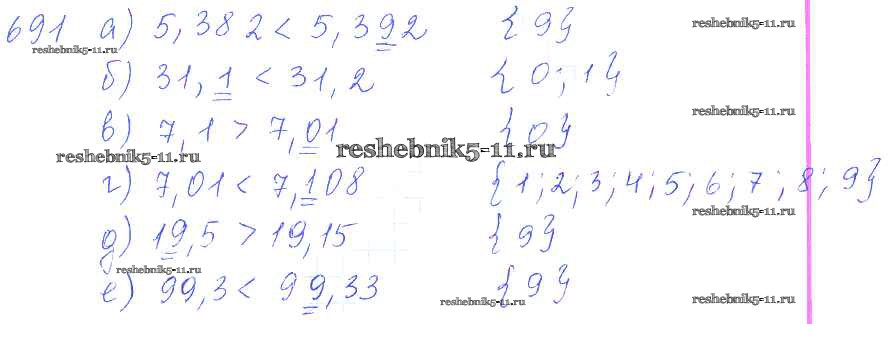 691 а) 5,382 < 5,392 {9}
reshebnik5-11.ru
reshebnik5-11.ru
б) 31,1 < 31,2 {0; 1}
reshebnik5-11.ru
в) 7,1 > 7,01 {0}
reshebnik5-11.ru
reshebnik5-11.ru
г) 7,01 < 7,108 {1; 2; 3; 4; 5; 6; 7; 8; 9}
reshebnik5-11.ru
д) 19,5 > 19,15 {9}
reshebnik5-11.ru
е) 99,3 < 99,33 {9}
reshebnik5-11.ru
reshebnik5-11.ru